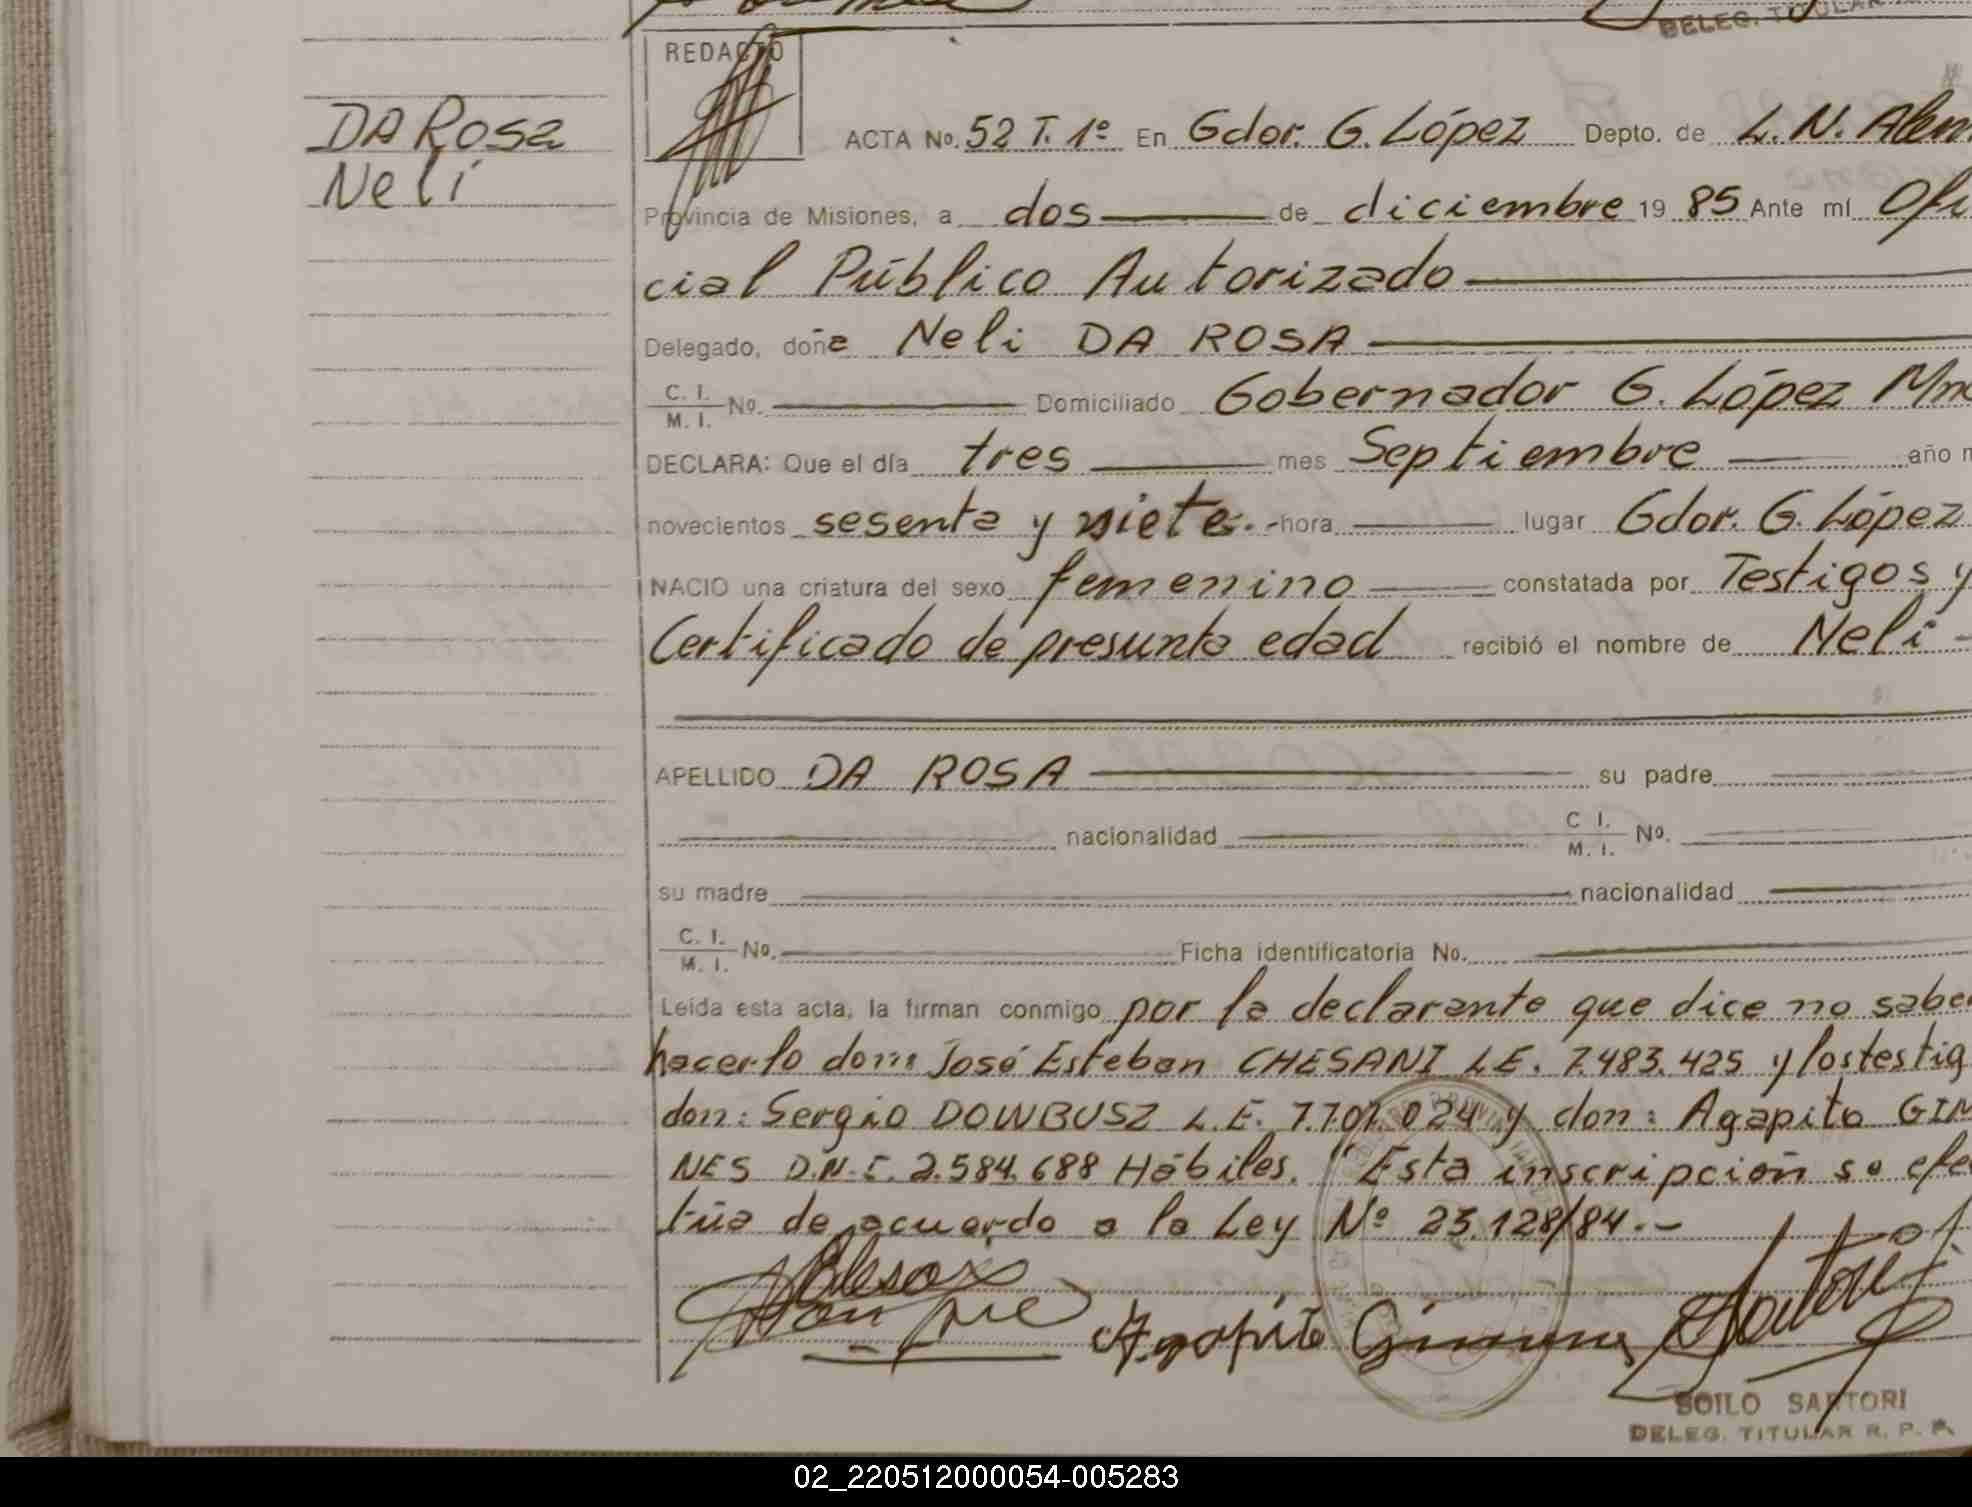 DELEG. TITULAR
REDACTO
DA Rosa
Neli
ACTA No. 52 T. 1º En Gdor. G. López Depto. de L. N. Alem
Provincia de Misiones, a dos de diciembre 19 85 Ante mí Ofi
cial Público Autorizado
Delegado, doña Neli DA ROSA
C. I.
M. I. No. Domiciliado Gobernador G. López Mnes
DECLARA: Que el día tres mes Septiembre año m
novecientos sesenta y siete.- hora lugar Gdor. G. López
NACIO una criatura del sexo femenino constatada por Testigos y
Certificado de presunta edad recibió el nombre de Neli
APELLIDO DA ROSA su padre
nacionalidad C I.
M. I. No.
su madre nacionalidad
C. I.
M. I. No. Ficha identificatoria No.
Leída esta acta, la firman conmigo por la declarante que dice no saber
hacerlo don: José Esteban CHESANI L.E. 7.483.425 y los testig
don: Sergio DOWBUSZ L.E. 7.701.024 y don: Agapito GIM
NES D.N.I. 2.584.688 Hábiles. "Esta inscripción se efec
túa de acuerdo a la Ley Nº 23.128/84.-
Agapito Gimenes
BOILO SARTORI
DELEG. TITULAR R. P. P.
02_220512000054-005283